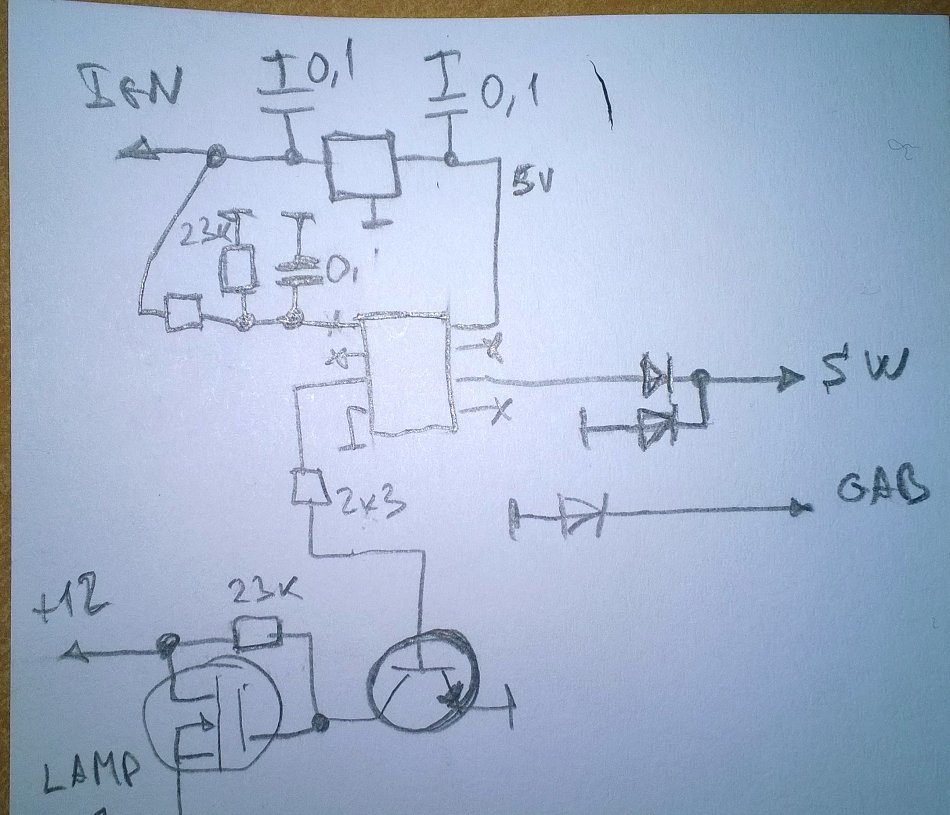 IGN
0,1
0,1
5V
23K
0,
SW
GAB
2K3
+12
23K
LAMP